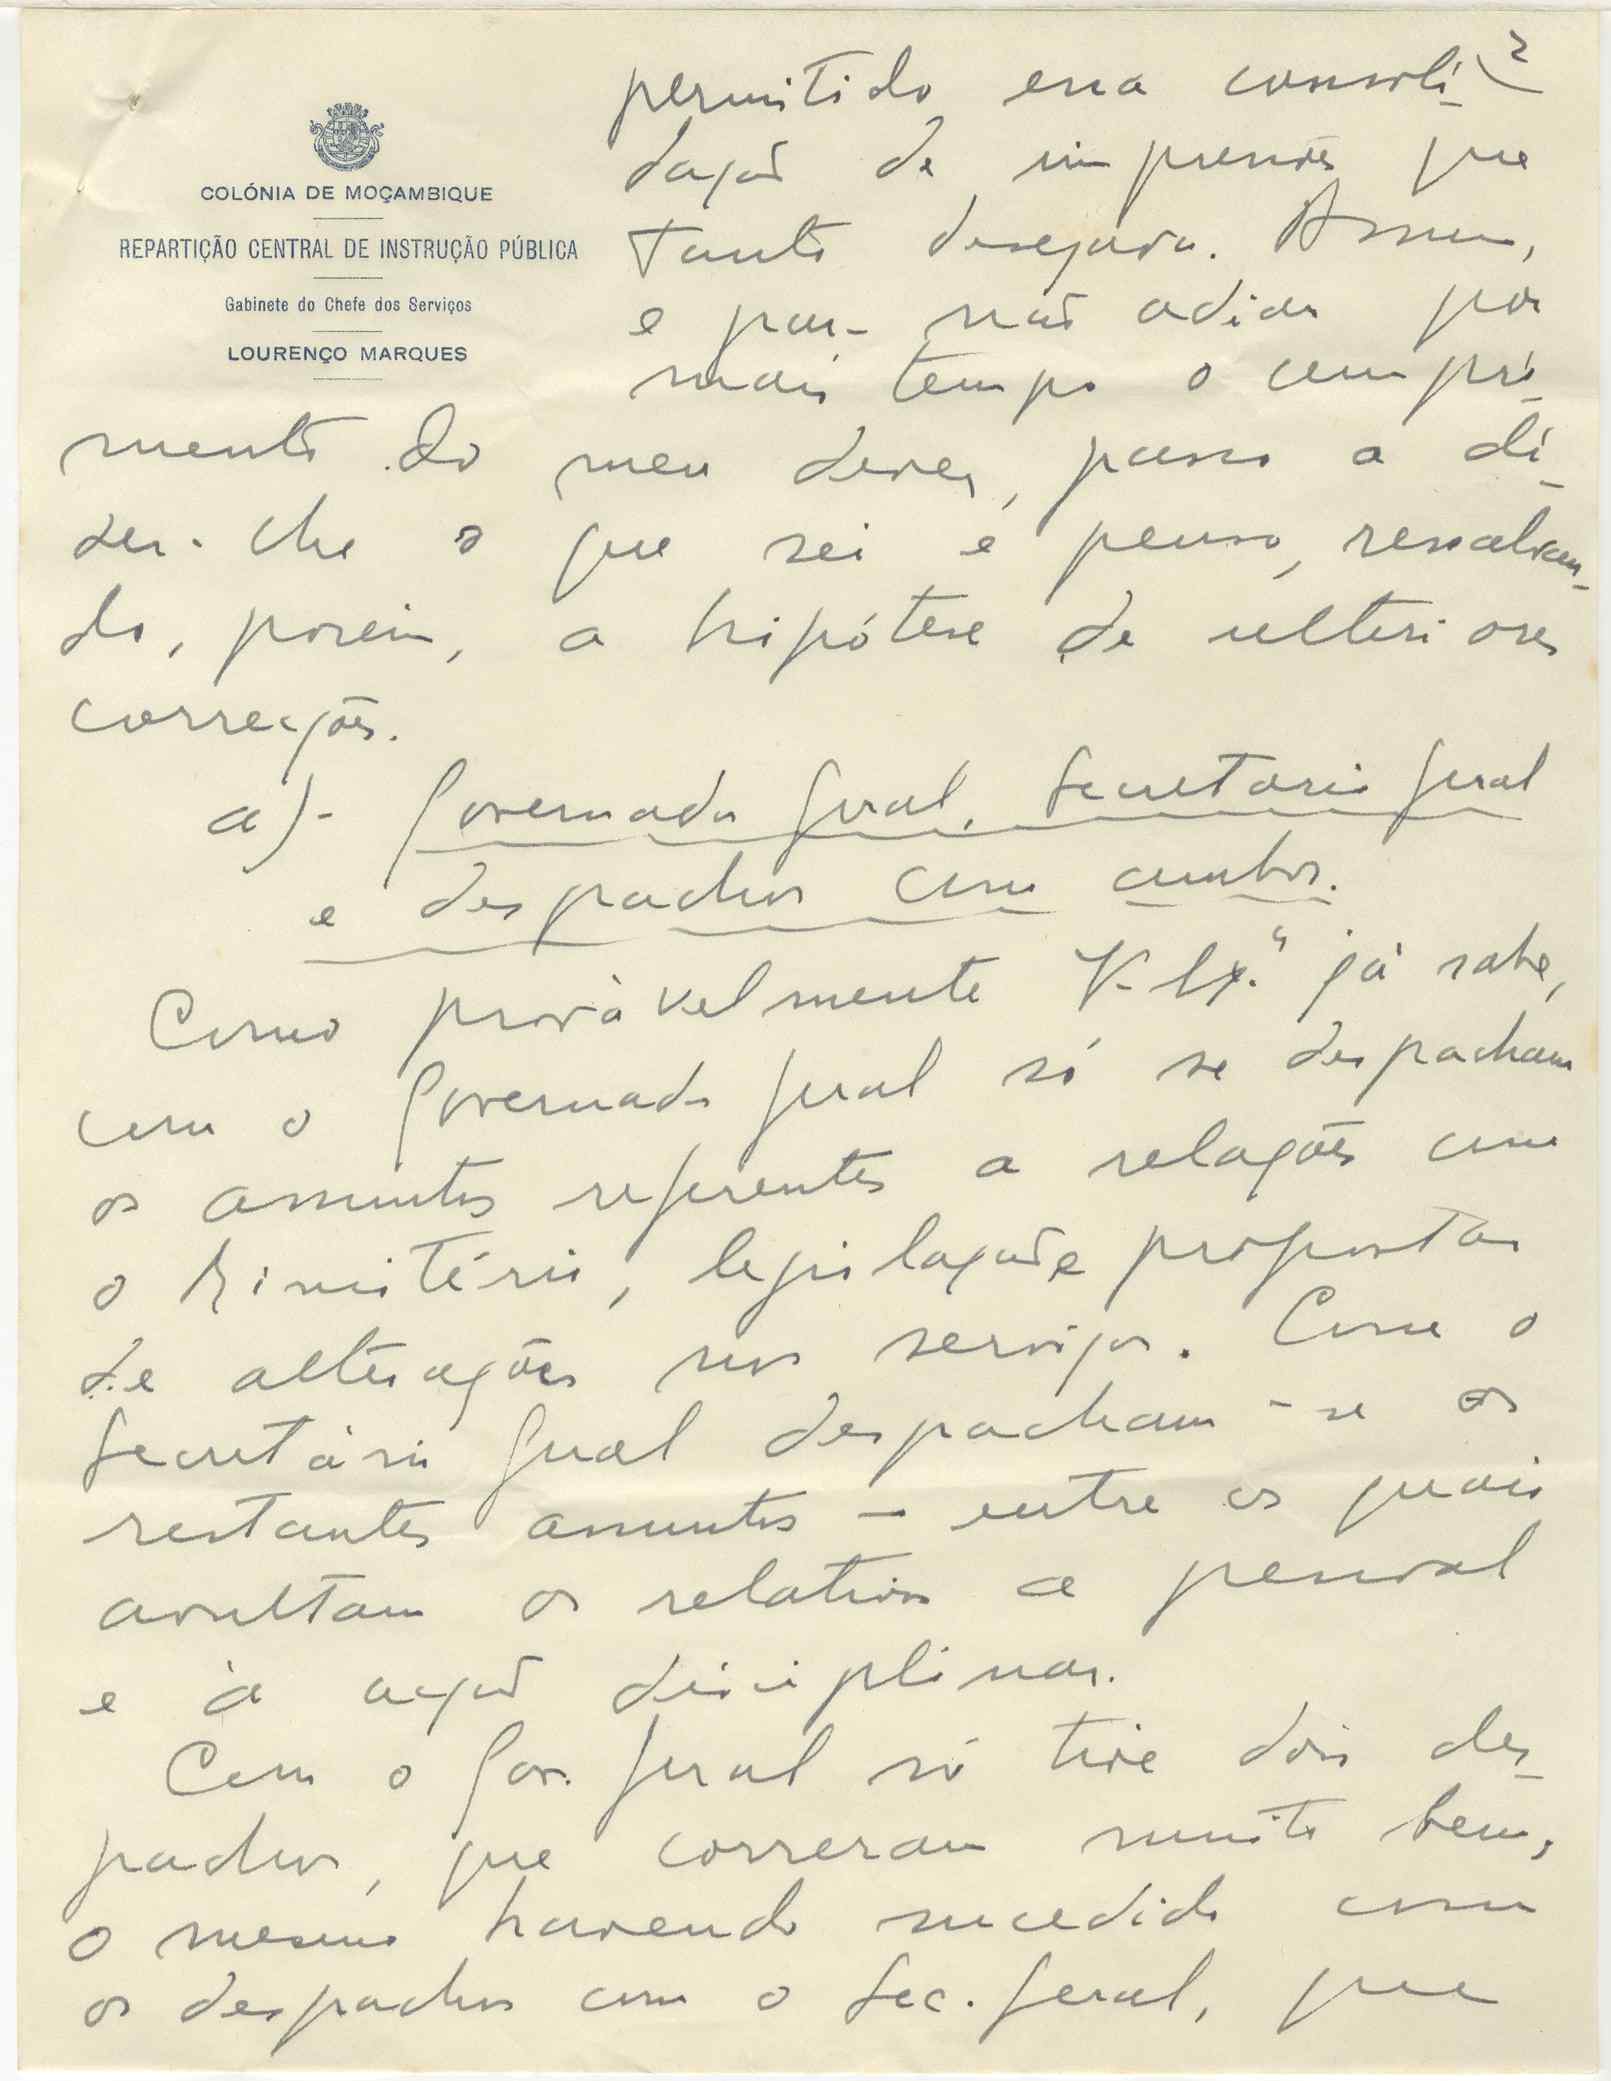 2
COLÓNIA DE MOÇAMBIQUE
REPARTIÇÃO CENTRAL DE INSTRUÇÃO PÚBLICA
Gabinete do Chefe dos Serviços
LOURENÇO MARQUES
permitido essa consoli-
dação de impressões que
tanto desejava. Assim,
e para não adiar por
mais tempo o cumpri-
mento do meu dever, passo a di-
zer-lhe o que sei e penso, ressalvan-
do, porém, a hipótese de ulteriores
correcções.
a)- Governador Geral, Secretario Geral
e despachos com ambos.
Como provàvelmente V. Ex.ª já sabe,
com o Governador Geral só se despacham
os assuntos referentes a relações com
o Ministério, legislação e propostas
de alterações nos serviços. Com o
Secretário Geral despacham-se os
restantes assuntos - entre os quais
avultam os relativos a pessoal
e à acção disciplinar.
Com o Gov. Geral só tive dois des-
pachos, que correram muito bem,
o mesmo havendo sucedido com
os despachos com o Sec. Geral, que